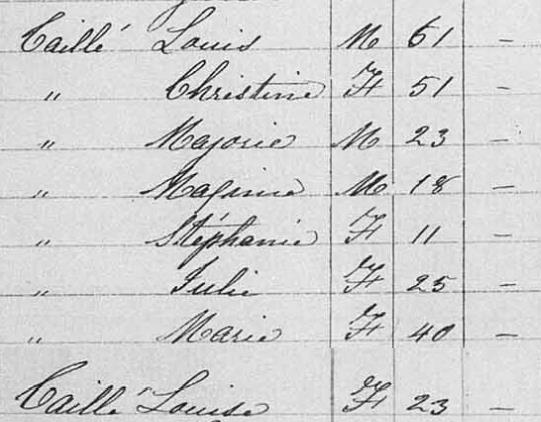 Caillé Louis M 61 –
" Christine F 51 –
" Majorie M 23 –
" Maxime M 18 –
" Stéphanie F 11 –
" Julie F 25 –
" Marie F 40 –
Caillé Louise F 23 –